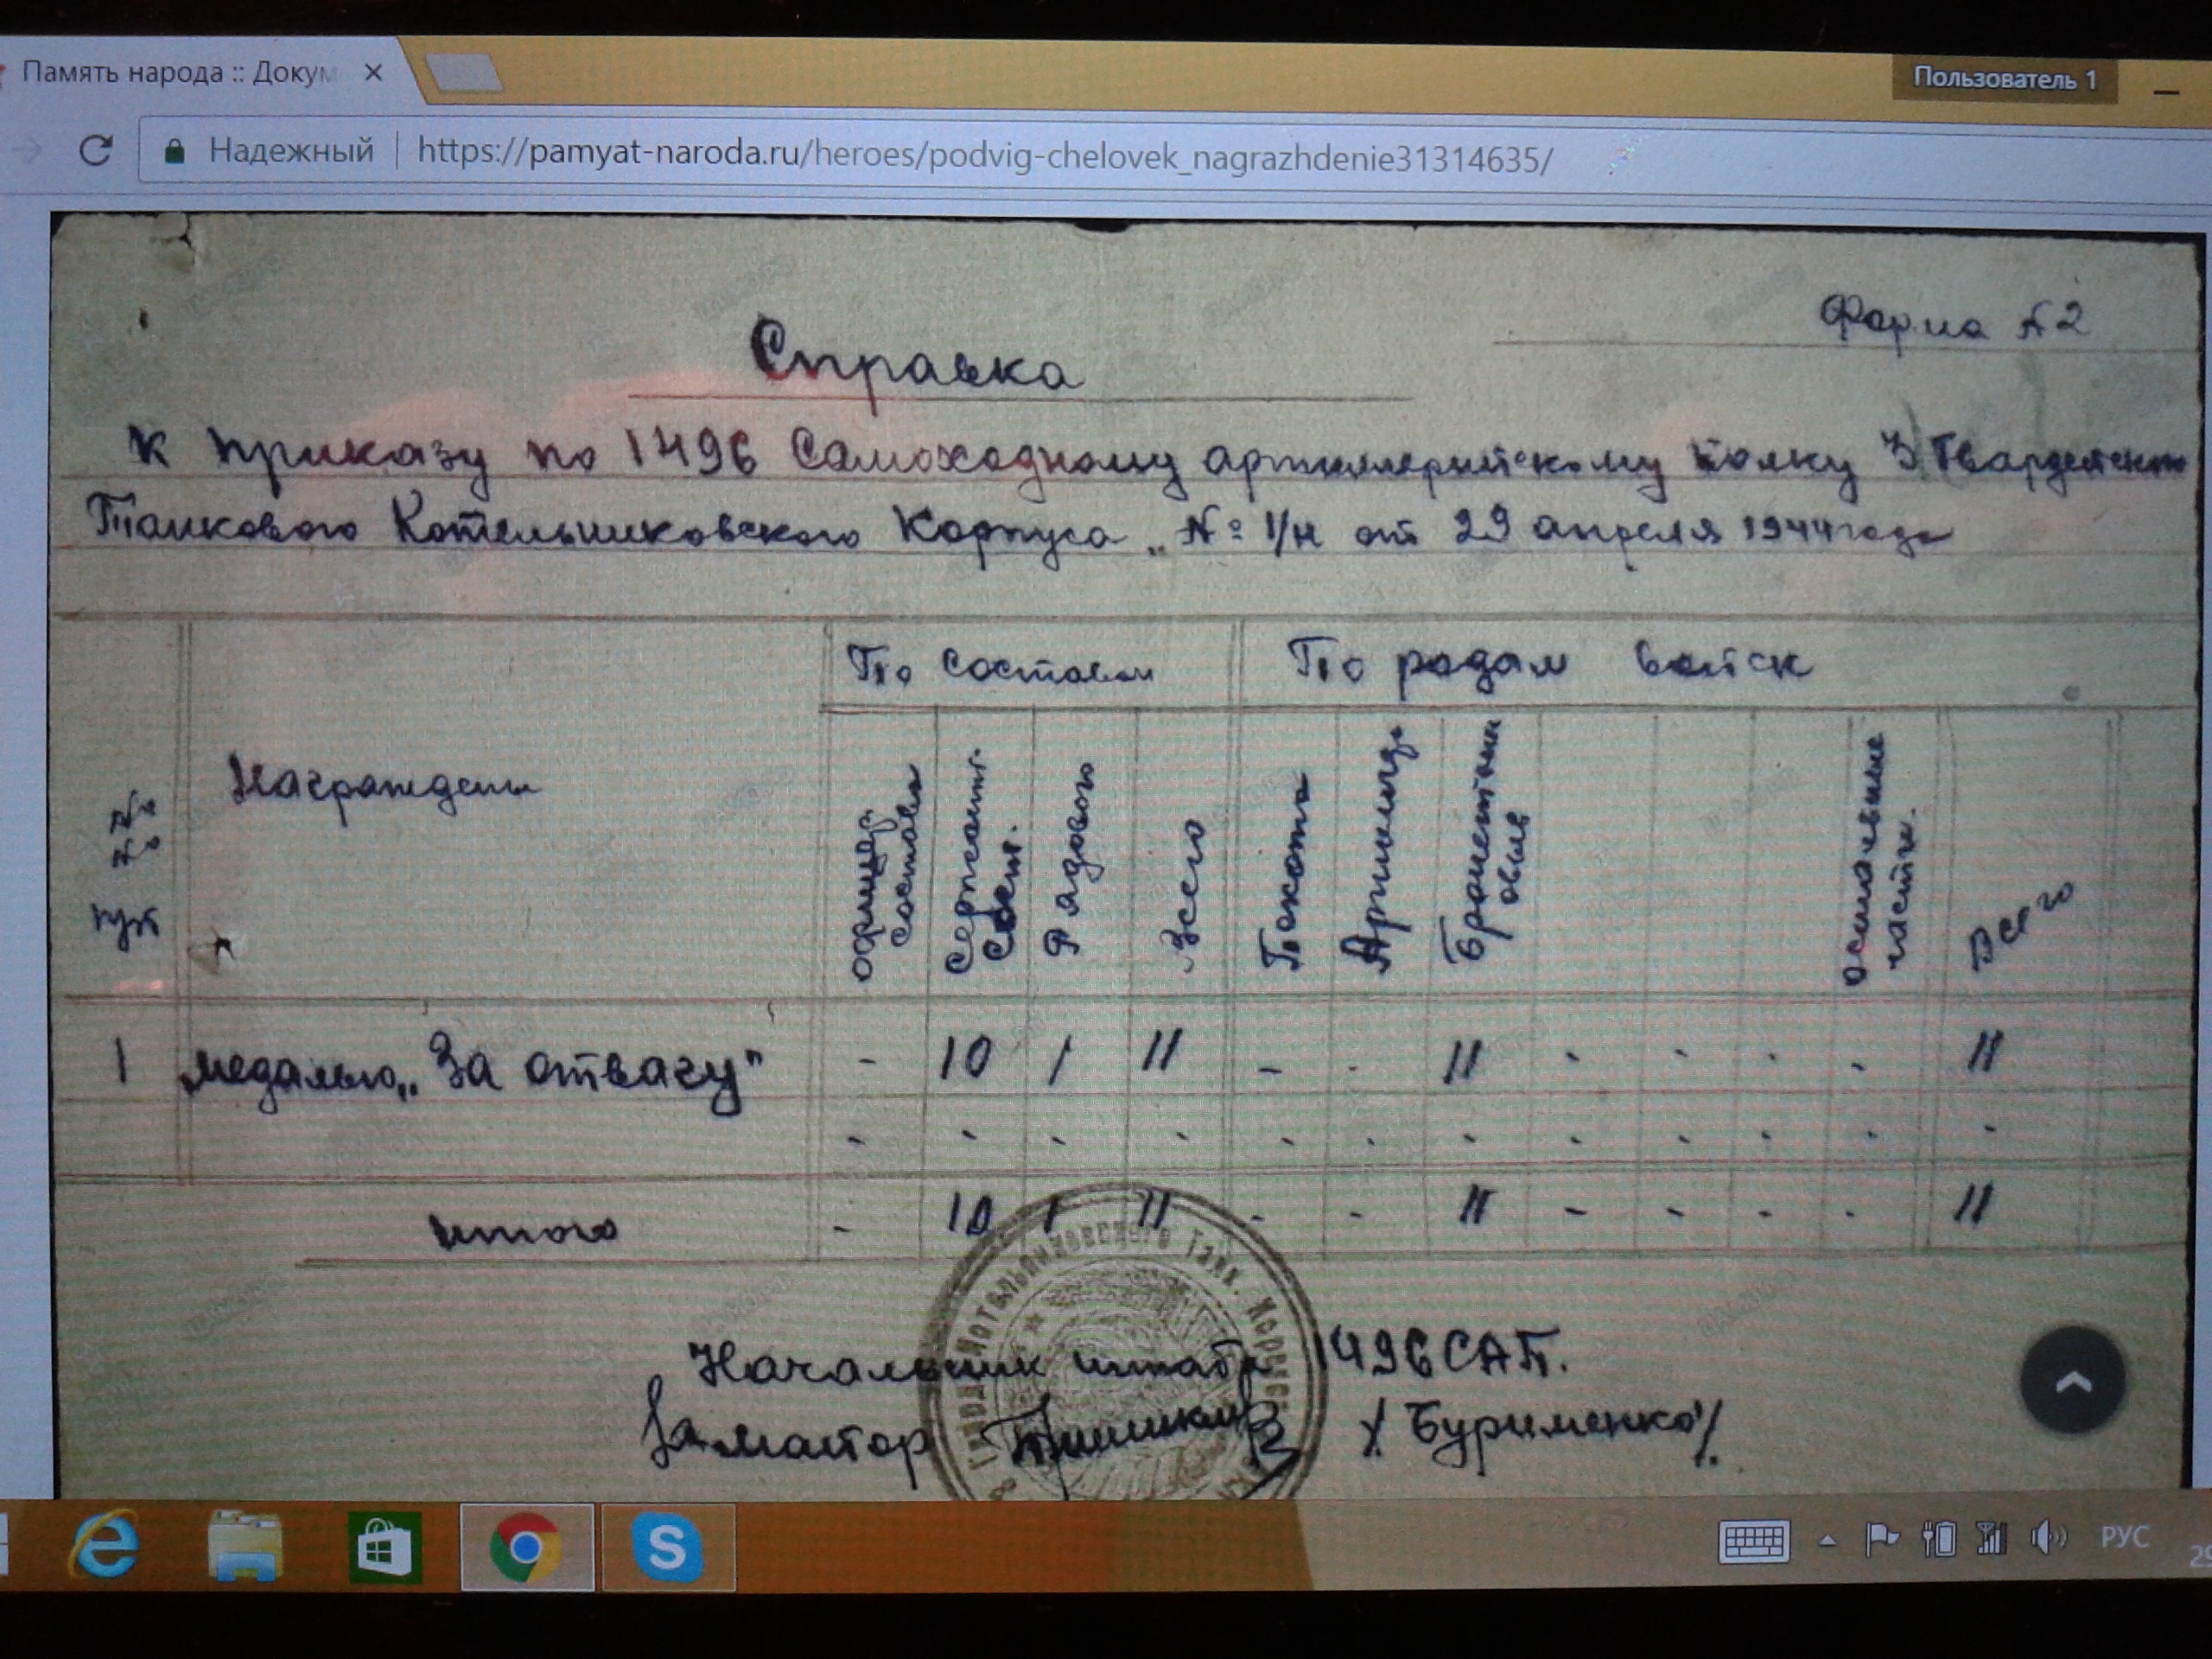 Память народа :: Докум
Пользователь 1
Надежный
https://pamyat-naroda.ru/heroes/podvig-chelovek_nagrazhdenie31314635/
Форма №2
Справка
К приказу по 1496 Самоходному артиллерийскому полку 3 Гвардейского
Танкового Котельниковского Корпуса „ № 1/н от 29 апреля 1944 года
По составам
По родам войск
Награждены
офицер. состава
Сержант. Сост.
Рядового
Всего
Пехота
Артиллер.
Бронетанк овые
остальные части.
Всего
1 медалью „За отвагу" - 10 1 11 - - 11 - - - - 11
- - - - - - - - - - - -
итого - 10 1 11 - - 11 - - - - 11
Котельниковского Танк. Корпуса
Начальник штаба 1496 САП.
За майор /Бурименко/.
РУС